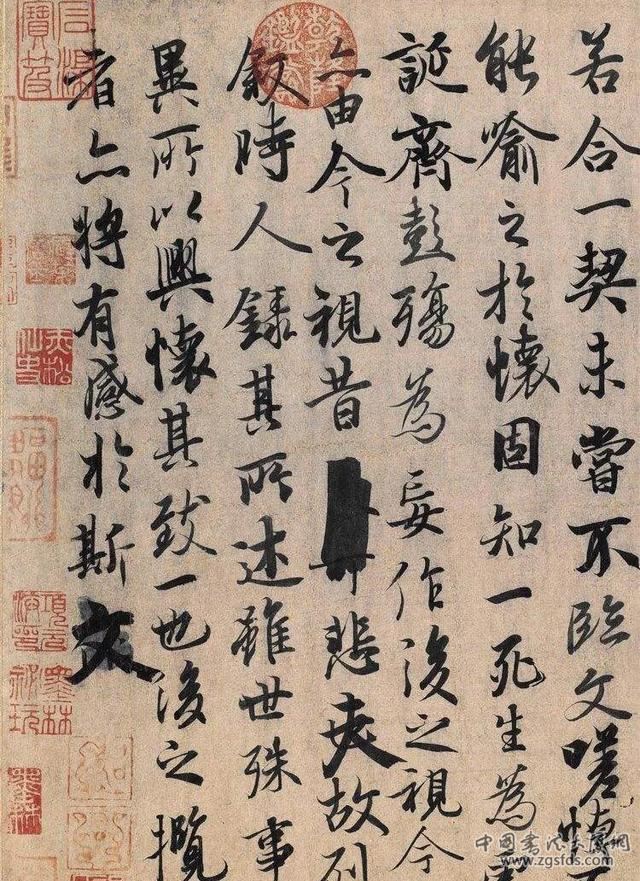 若合一契未嘗不臨文嗟悼不
能喻之於懷固知一死生為
誕齊彭殤為妄作後之視今
亦由今之視昔悲夫故列
敘時人錄其所述雖世殊事
異所以興懷其致一也後之攬
者亦將有感於斯文
www.zgsfds.com